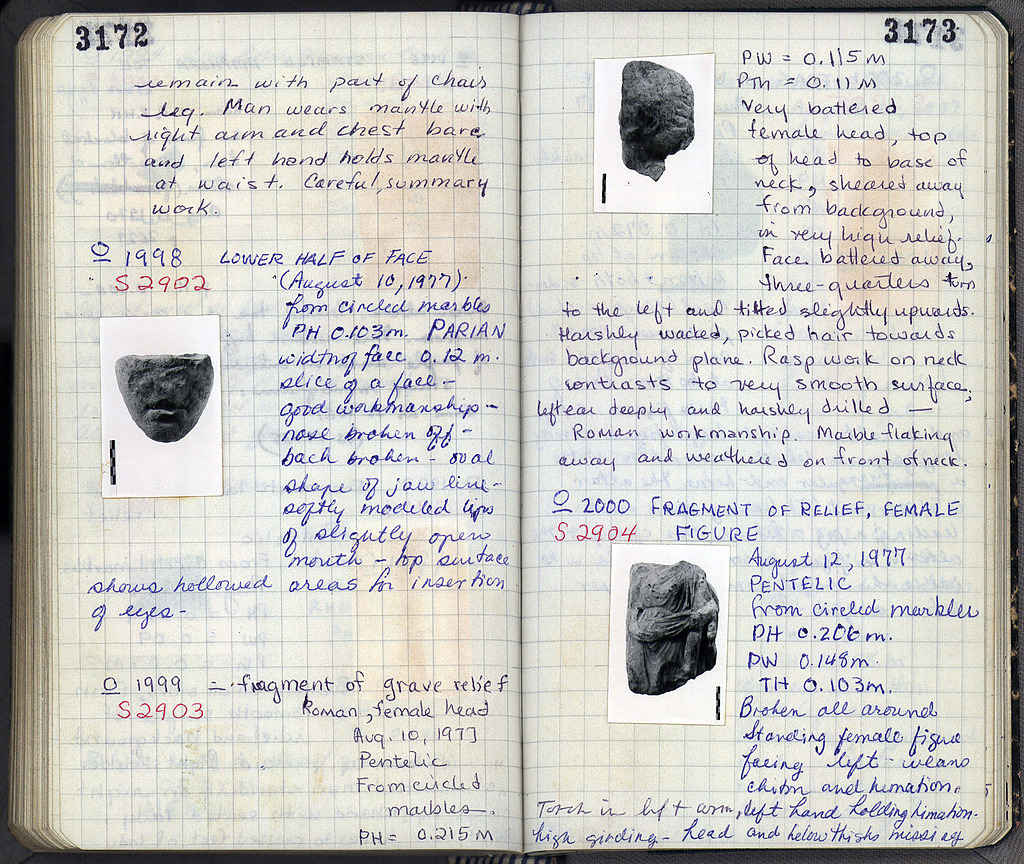 3172
remain with part of chair
leg. Man wears mantle with
right arm and chest bare
and left hand holds mantle
at waist. Careful, summary
work.
O 1998 LOWER HALF OF FACE
S 2902 (August 10, 1977)
from circled marbles
PH 0.103m. PARIAN
width of face 0.12 m.
slice of a face -
good workmanship -
nose broken off -
back broken - oval
shape of jaw line -
softly modeled lips
of slightly open
mouth - top surface
shows hollowed areas for insertion
of eyes -
O 1999 = fragment of grave relief
S 2903 Roman, female head
Aug. 10, 1977
Pentelic
From circled
marbles -.
PH = 0.215 M
3173
PW = 0.115 M
PTh = 0.11 M
Very battered
female head, top
of head to base of
neck, sheared away
from background,
in very high relief.
Face battered away,
three-quarters turn
to the left and tilted slightly upwards.
Harshly wacked, picked hair towards
background plane. Rasp work on neck
contrasts to very smooth surface;
left ear deeply and harshley drilled —
Roman workmanship. Marble flaking
away and weathered on front of neck.
O 2000 FRAGMENT OF RELIEF, FEMALE
S 2904 FIGURE
August 12, 1977
PENTELIC
from circled marbles
PH 0.206 m.
PW 0.148m.
TH 0.103m.
Broken all around
Standing female figure
facing left - wears
chiton and himation.
Torch in left arm, left hand holding himation.
high girding - head and below thighs missing